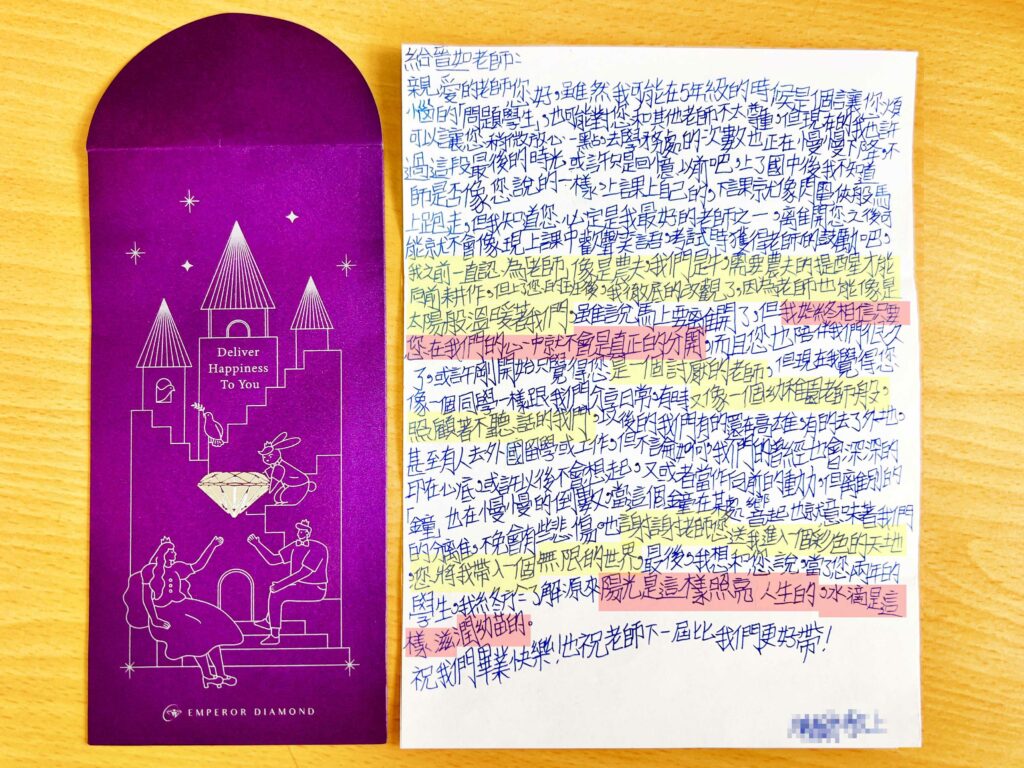 Deliver
Happiness
To You
EMPEROR DIAMOND
給晉如老師：
親愛的老師你好，雖然我可能在5年級的時候是個讓您煩
惱的問題學生，也可能對您和其他老師不太尊重，但現在的我也許
可以讓您稍微放心一點，去學務處的次數也正在慢慢下降，不
過這段最後的時光，或許只是回憶以前吧，上了國中後我不知道
師是否像您說的一樣，上課上自己的，下課就像肉圓俠般馬
上跑走，但我知道您必定是我最好的老師之一，離開您之後可
能就不會像現上課中歡聲笑語，考試時獲得老師的鼓勵吧，
我之前一直認為老師像是農夫，我們是牛需要農夫的提醒才能
向前耕作，但上了您的班後，我徹底的改觀了，因為老師也能像是
太陽般溫暖著我們，雖說馬上要離開了，但我始終相信只要
您在我們的心中就不會是真正的分開，而且您也陪我們很久
了，或許剛開始只覺得您是一個討厭的老師，但現在我覺得您
像一個同學一樣跟我們分享日常，有時又像一個幼稚園老師般，
照顧著不聽話的我們，及後的我們有的還在高雄有的去了外地，
甚至有人去外國留學或工作，但不論如何我們的曾經也會深深的
印在心底，或許以後不會想起，又或者當作自前的動力，但離別的
「鐘」也在慢慢的倒數，當這個鐘在某處響起也就意味著我們
的分離，不免會有些悲傷，也謝謝老師您送我進入一個彩色的天地
，您將我帶入一個無限的世界，最後，我想和您說，當了您兩年的
學生，我終於了解，原來陽光是這樣照亮人生的，水滴是這
樣滋潤幼苗的。
祝我們畢業快樂！也祝老師下一屆比我們更好帶！
上